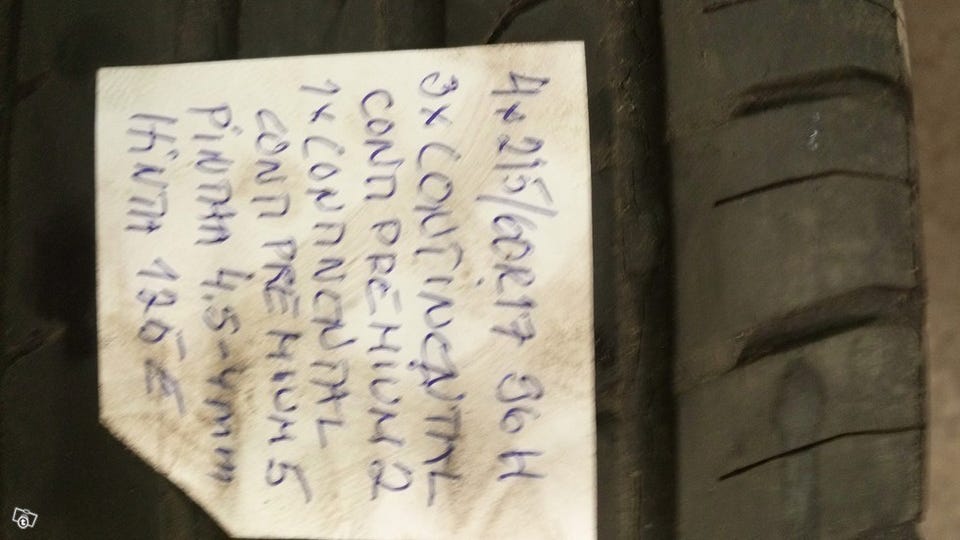 4x215/60R17 96H
3x CONTINENTAL
CONTI PREMIUM 2
1x CONTINENTAL
CONTI PREMIUM 5
PINTAA 4.5-4mm
HINTA 120 €